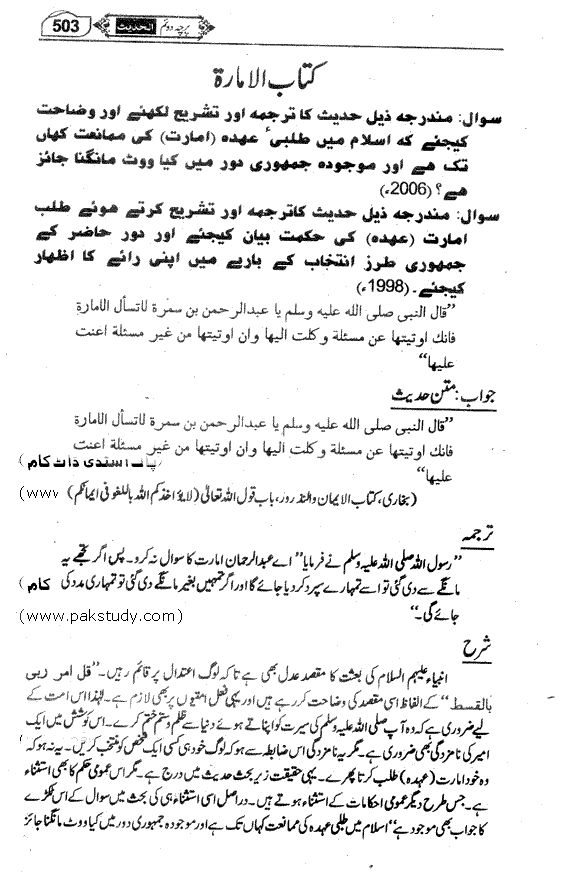 503 الحدیث پرچہ دوئم
کتاب الامارۃ
سوال: مندرجہ ذیل حدیث کا ترجمہ اور تشریح لکھئے اور وضاحت
کیجئے کہ اسلام میں طلبیٔ عہدہ (امارت) کی ممانعت کہاں
تک ہے اور موجودہ جمہوری دور میں کیا ووٹ مانگنا جائز
ہے؟ (2006ء)
سوال: مندرجہ ذیل حدیث کاترجمہ اور تشریح کرتے ہوئے طلب
امارت (عہدہ) کی حکمت بیان کیجئے اور دور حاضر کے
جمہوری طرز انتخاب کے بارے میں اپنی رائے کا اظہار
کیجئے۔ (1998ء)
”قال النبی صلی الله علیه وسلم یا عبدالرحمن بن سمرة لاتسأل الامارة
فانك اوتیتها عن مسئلة وكلت الیها وان اوتیتها من غیر مسئلة اعنت
علیها“
جواب: متن حدیث
”قال النبی صلی الله علیه وسلم یا عبدالرحمن بن سمرة لاتسأل الامارة
فانك اوتیتها عن مسئلة وكلت الیها وان اوتیتها من غیر مسئلة اعنت
علیها“
پاک اسٹڈی ڈاٹ کام)
(بخاری، کتاب الایمان والنذرور، باب قول اللہ تعالیٰ (لایؤاخذکم اللہ باللغو فی ایمانکم) www)
ترجمہ
”رسول اللہ صلی اللہ علیہ وسلم نے فرمایا“ اے عبدالرحمان امارت کا سوال نہ کرو۔ پس اگر تجھے یہ
مانگے سے دی گئی تو اسے تمہارے سپرد کردیا جائے گا اور اگر تمہیں بغیر مانگے دی گئی تو تمہاری مدد کی کام)
جائے گی۔“
(www.pakstudy.com)
شرح
انبیاء علیہم السلام کی بعثت کا مقصد عدل بھی ہے تاکہ لوگ اعتدال پر قائم رہیں۔ ”قل امر ربی
بالقسط“ کے الفاظ اسی مقصد کی وضاحت کررہے ہیں اور یہی فعل امتیوں پر بھی لازم ہے۔ لہٰذا اس امت کے
لیے ضروری ہے کہ وہ آپ صلی اللہ علیہ وسلم کی سیرت کو اپناتے ہوئے دنیا سے ظلم وستم ختم کرے۔ اس کوشش میں ایک
امیر کی نامزدگی بھی ضروری ہے۔ مگر یہ نامزدگی اس ضابطہ سے ہو کہ لوگ خود ہی کسی ایک شخص کو منتخب کریں۔ یہ نہ ہو کہ
وہ خود امارت (عہدہ) طلب کرتا پھرے۔ یہی حقیقت زیر بحث حدیث میں درج ہے۔ مگر اس عمومی حکم کا بھی استثناء
ہے۔ جس طرح دیگر عمومی احکامات کے استثناء ہوتے ہیں۔ دراصل اسی استثناء ہی کی بحث میں سوال کے اس ٹکڑے
کا جواب بھی موجود ہے ”اسلام میں طلبی عہدہ کی ممانعت کہاں تک ہے اور موجودہ جمہوری دور میں کیا ووٹ مانگنا جائز